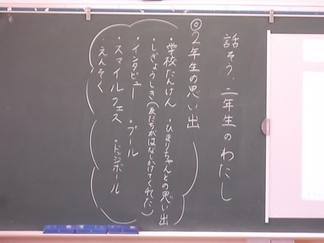 話そう、二年生のわたし
◎2年生の思い出
・学校たんけん ・ひまりちゃんとの思い出
・しぎょうしき(友だちがはなしかけてくれた)
・インタビュー ・プール
・スマイルフェス ・ドッジボール
・えんそく